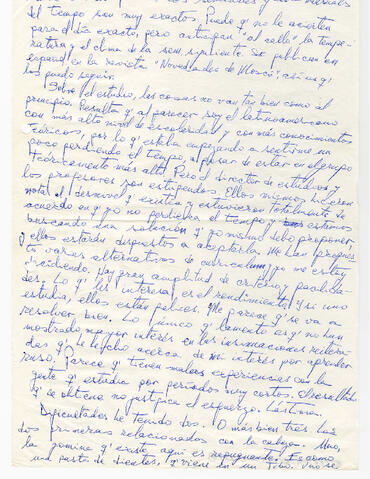 del tiempo son muy exactos. Puede q' no le acierten
para el día exacto, pero anticipan "al callo" la tempe-
ratura y el clima de la sem. siguiente. Se publican en
español en la revista "Novedades de Moscú", así que
los puedo seguir.
Sobre el estudio, las cosas no van tan bien como al
principio. Resulta q' al parecer soy el latinoamericano
con más alto nivel de escolaridad y con más conocimientos
teóricos, por lo q' estaba empezando a sentirme un
poco perdiendo el tiempo, a pesar de estar en el grupo
teóricamente más alto. Pero el director de estudios y
los profesores son estupendos. Ellos mismos hicieron
notar el desnivel q' existía y estuvieron totalmente de
acuerdo en q' yo no perdiera el tiempo y estamos
buscando una solución q' yo misma debo proponer
y ellos estarán dispuestos a aceptarla. Me han propues
to varias alternativas de curriculum, yo me estoy
decidiendo. Hay gran amplitud de criterio y facilida-
des. Lo q' les interesa es el rendimiento y si uno
estudia, ellos están felices. Me parece q' se va a
resolver bien. Lo único q' lamento es q' no han
mostrado mayor interés en las insinuaciones reitera-
das q' le he hecho acerca de mi interés por aprender
ruso. Parece q' tienen malas experiencias con la
gente q' estudia por períodos muy cortos. El resultado
q' se obtiene no justifica el esfuerzo. Lástima.
Dificultades he tenido dos. O más bien tres. Las
dos primeras relacionadas con la cabeza. Uno,
la gomina q' existe aquí es repugnante. Es como
una pasta de dientes, q' viene en un tubo.